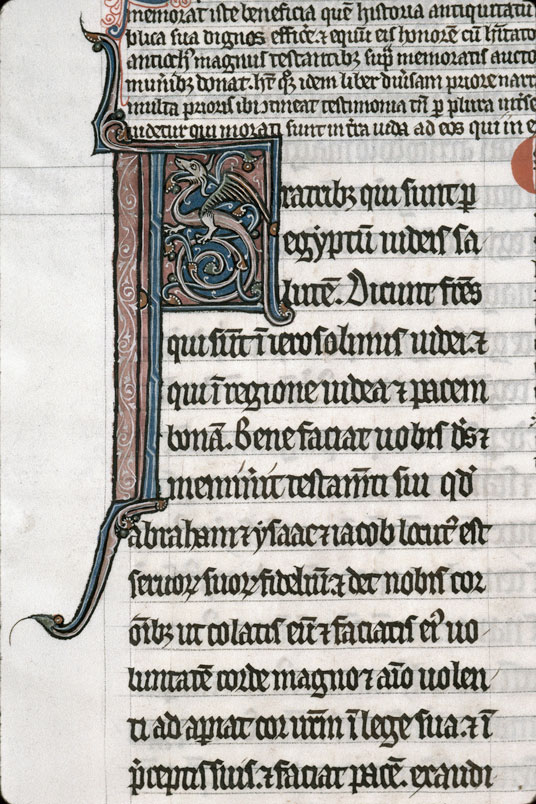 memorat iste beneficia quē historia antiquitatū
blica sua dignos effice⁊ & equiū eis honorē cū
antioch⁹ magnus testantibꝫ sup̄ memoratis aucto
munibꝫ donat. idem liber diuisam priore narr
multa prioris ibi ꝯtineat testimonia tn̄ p plura
uidetur qui morati sunt in t̄ra iuda ad eos qui in e
Fratribꝫ qui sunt p
egyptū iudeis sa
lutē. Dicunt fr̄es
qui sūt ī ierosolimis iudei. ⁊
qui ī regione iudea ⁊ pacem
bonā. Bene faciat uobis d̄s ⁊
meminīt testam̄ti sui qd̄
abraham ⁊ ysaac ⁊ iacob locut⁹ est
seruoꝝ suoꝝ fideliū. ⁊ det nobis cor
ōibꝫ ut colatis eū ⁊ faciatis ei⁹ uo
luntatē corde magno ⁊ aīo uolen
ti ad apriat cor urm̄ ī lege sua. ⁊ ī
p̄ceptis suis. ⁊ faciat pacē. exaudi